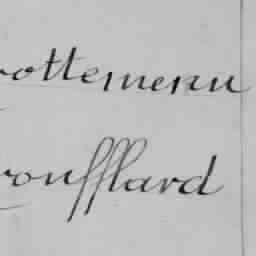 rottemenn
roufflard